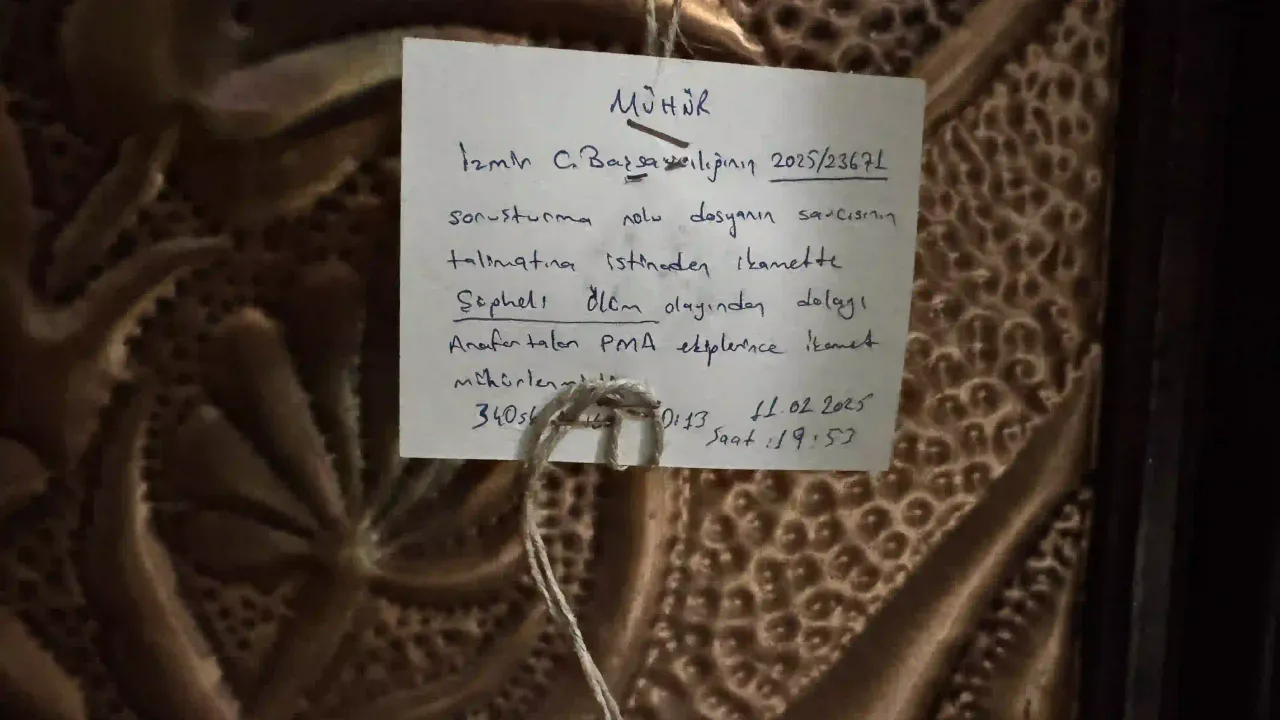 MÜHÜR
İzmir C. Başsavcılığının 2025/23671
soruşturma nolu dosyanın savcısının
talimatına istinaden ikamette
Şüpheli Ölüm olayından dolayı
Anafartalar PMA ekiplerince ikamet
11.02.2025
Saat : 19:53